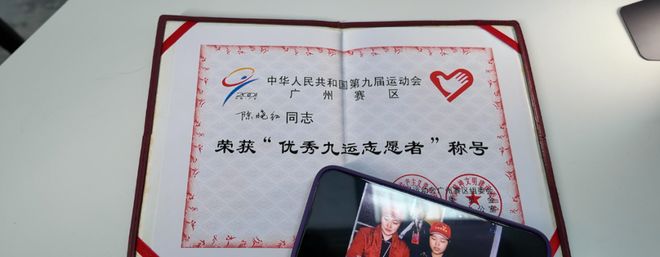 中华人民共和国第九届运动会
广州赛区
陈晓红同志
荣获“优秀九运志愿者”称号
广州赛区组委